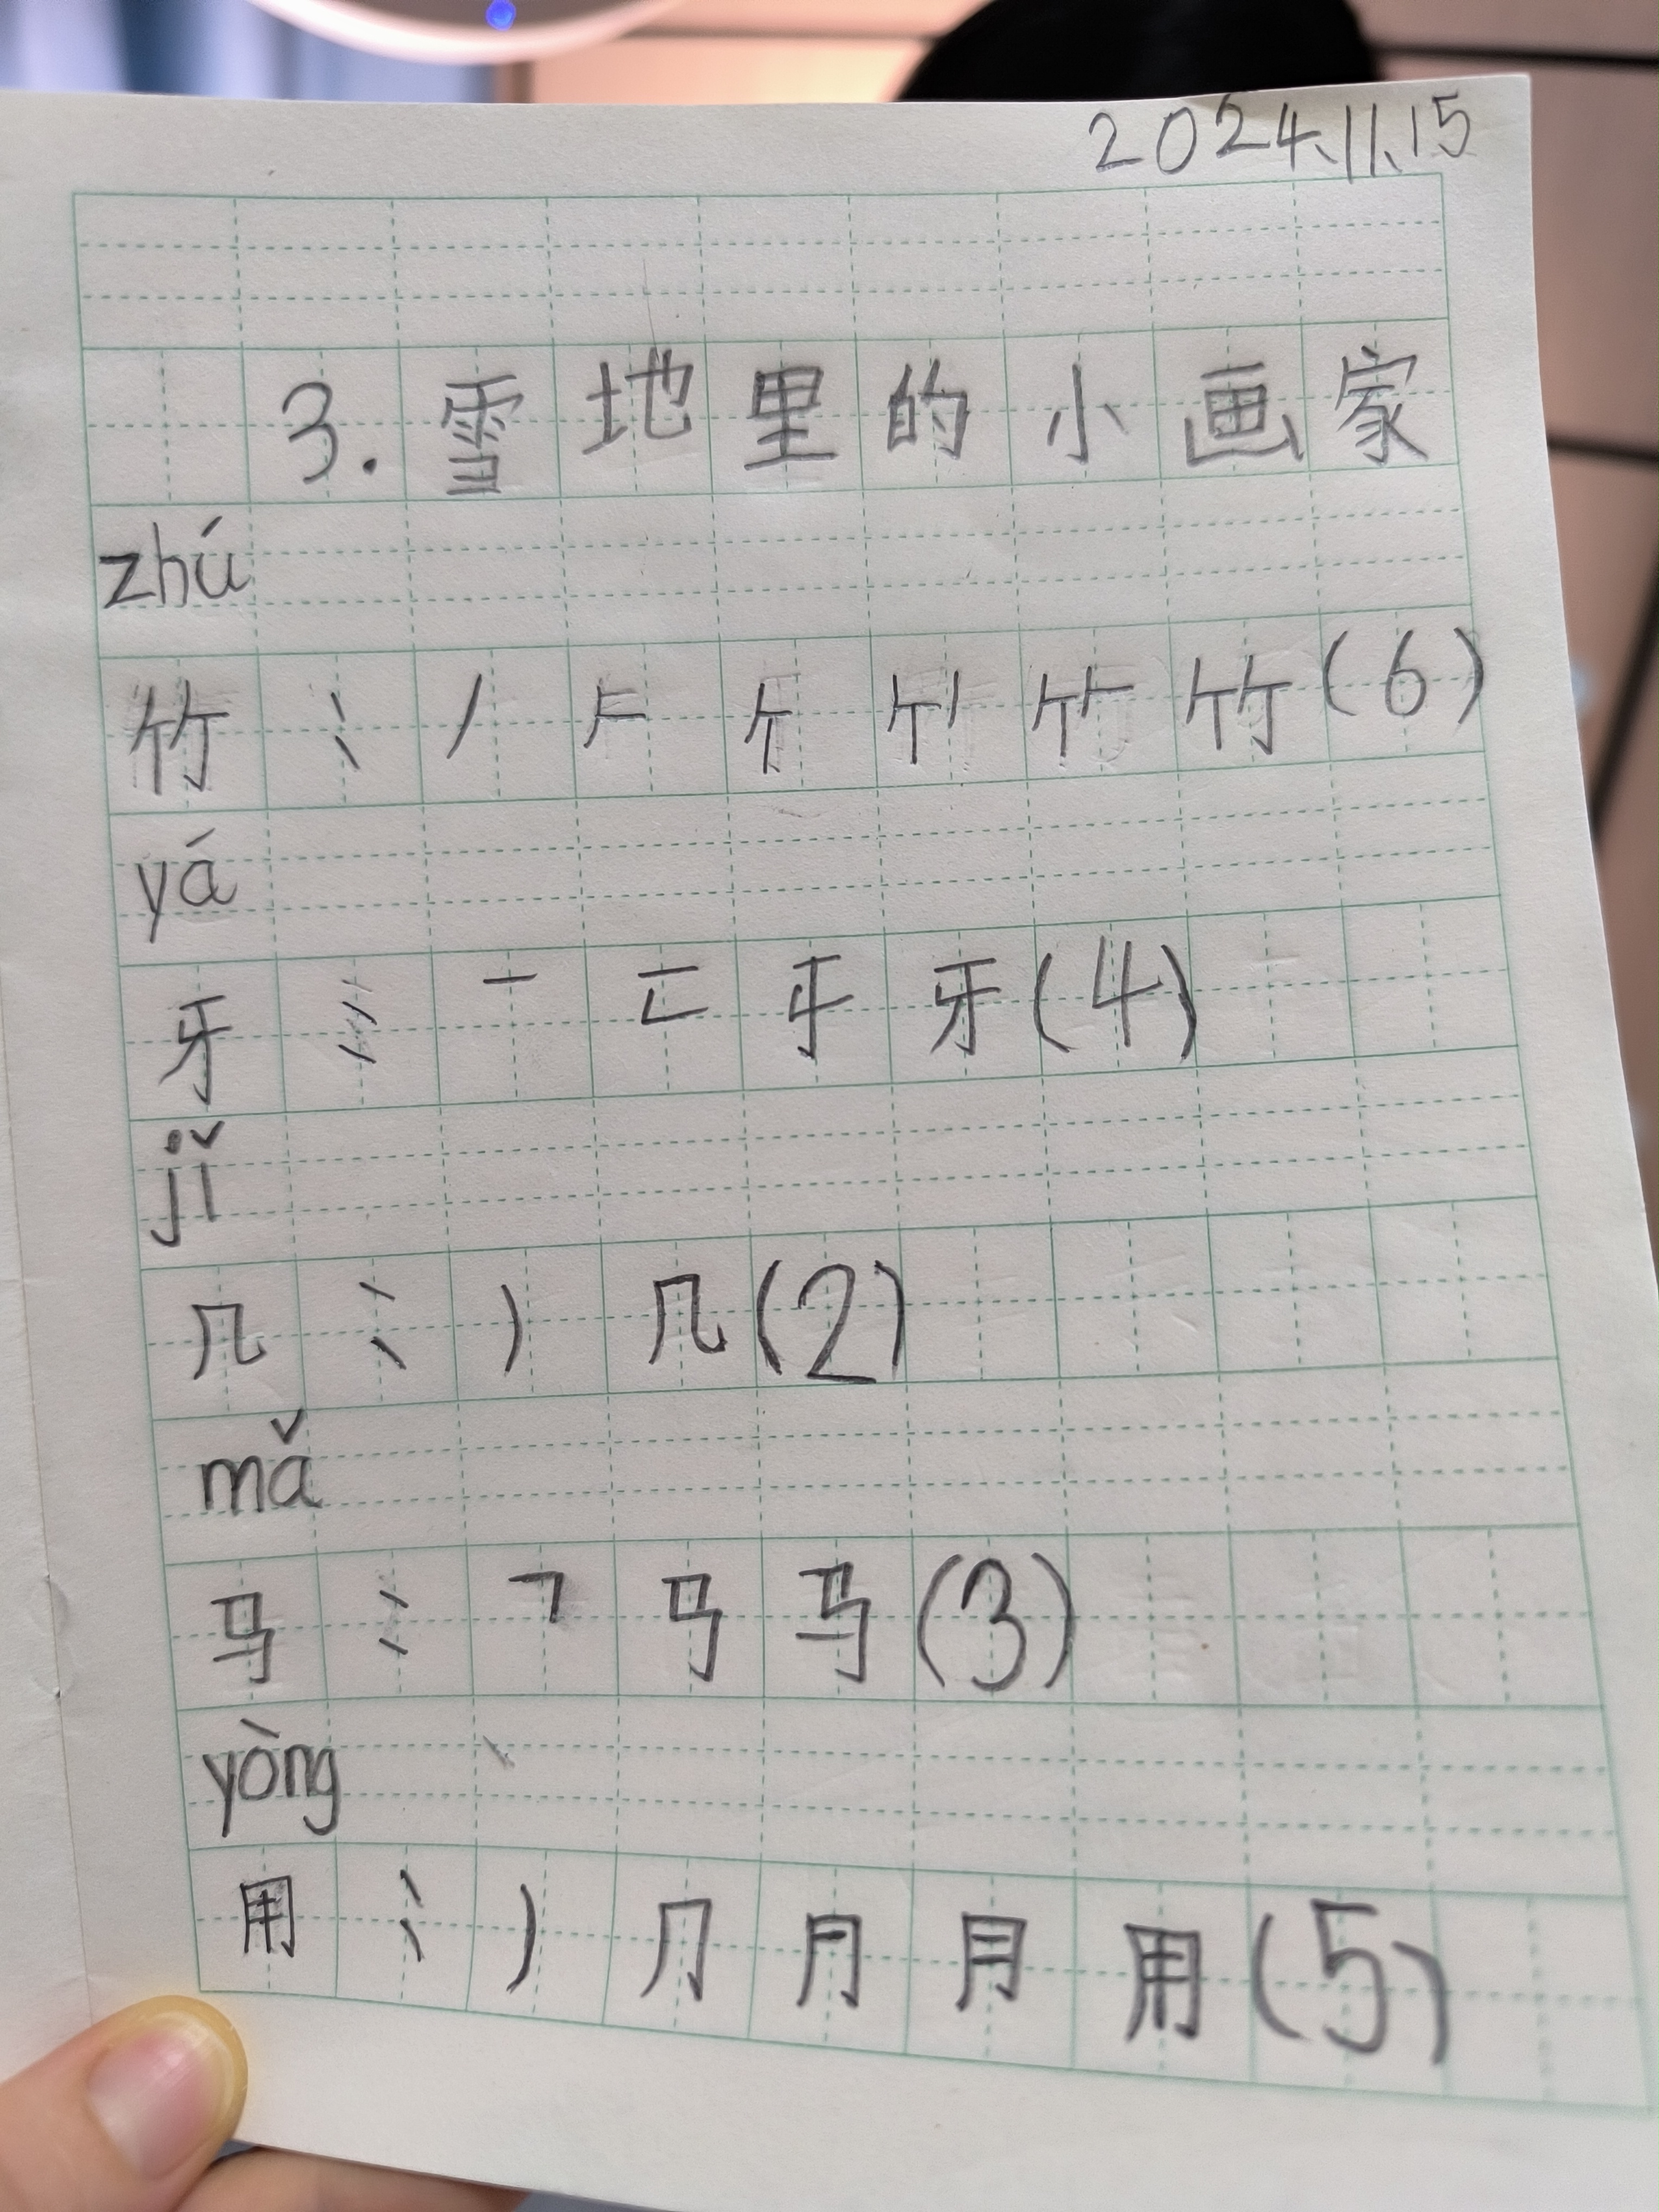 2024.11.15
3. 雪地里的小画家
zhú
竹 : 丿 𠂉 亇 竹 竹 (6)
yá
牙 : 一 二 牙 (4)
jǐ
几 : 丿 几 (2)
mǎ
马 : ㇕ 马 (3)
yòng
用 : 丿 ⺆ 月 用 (5)